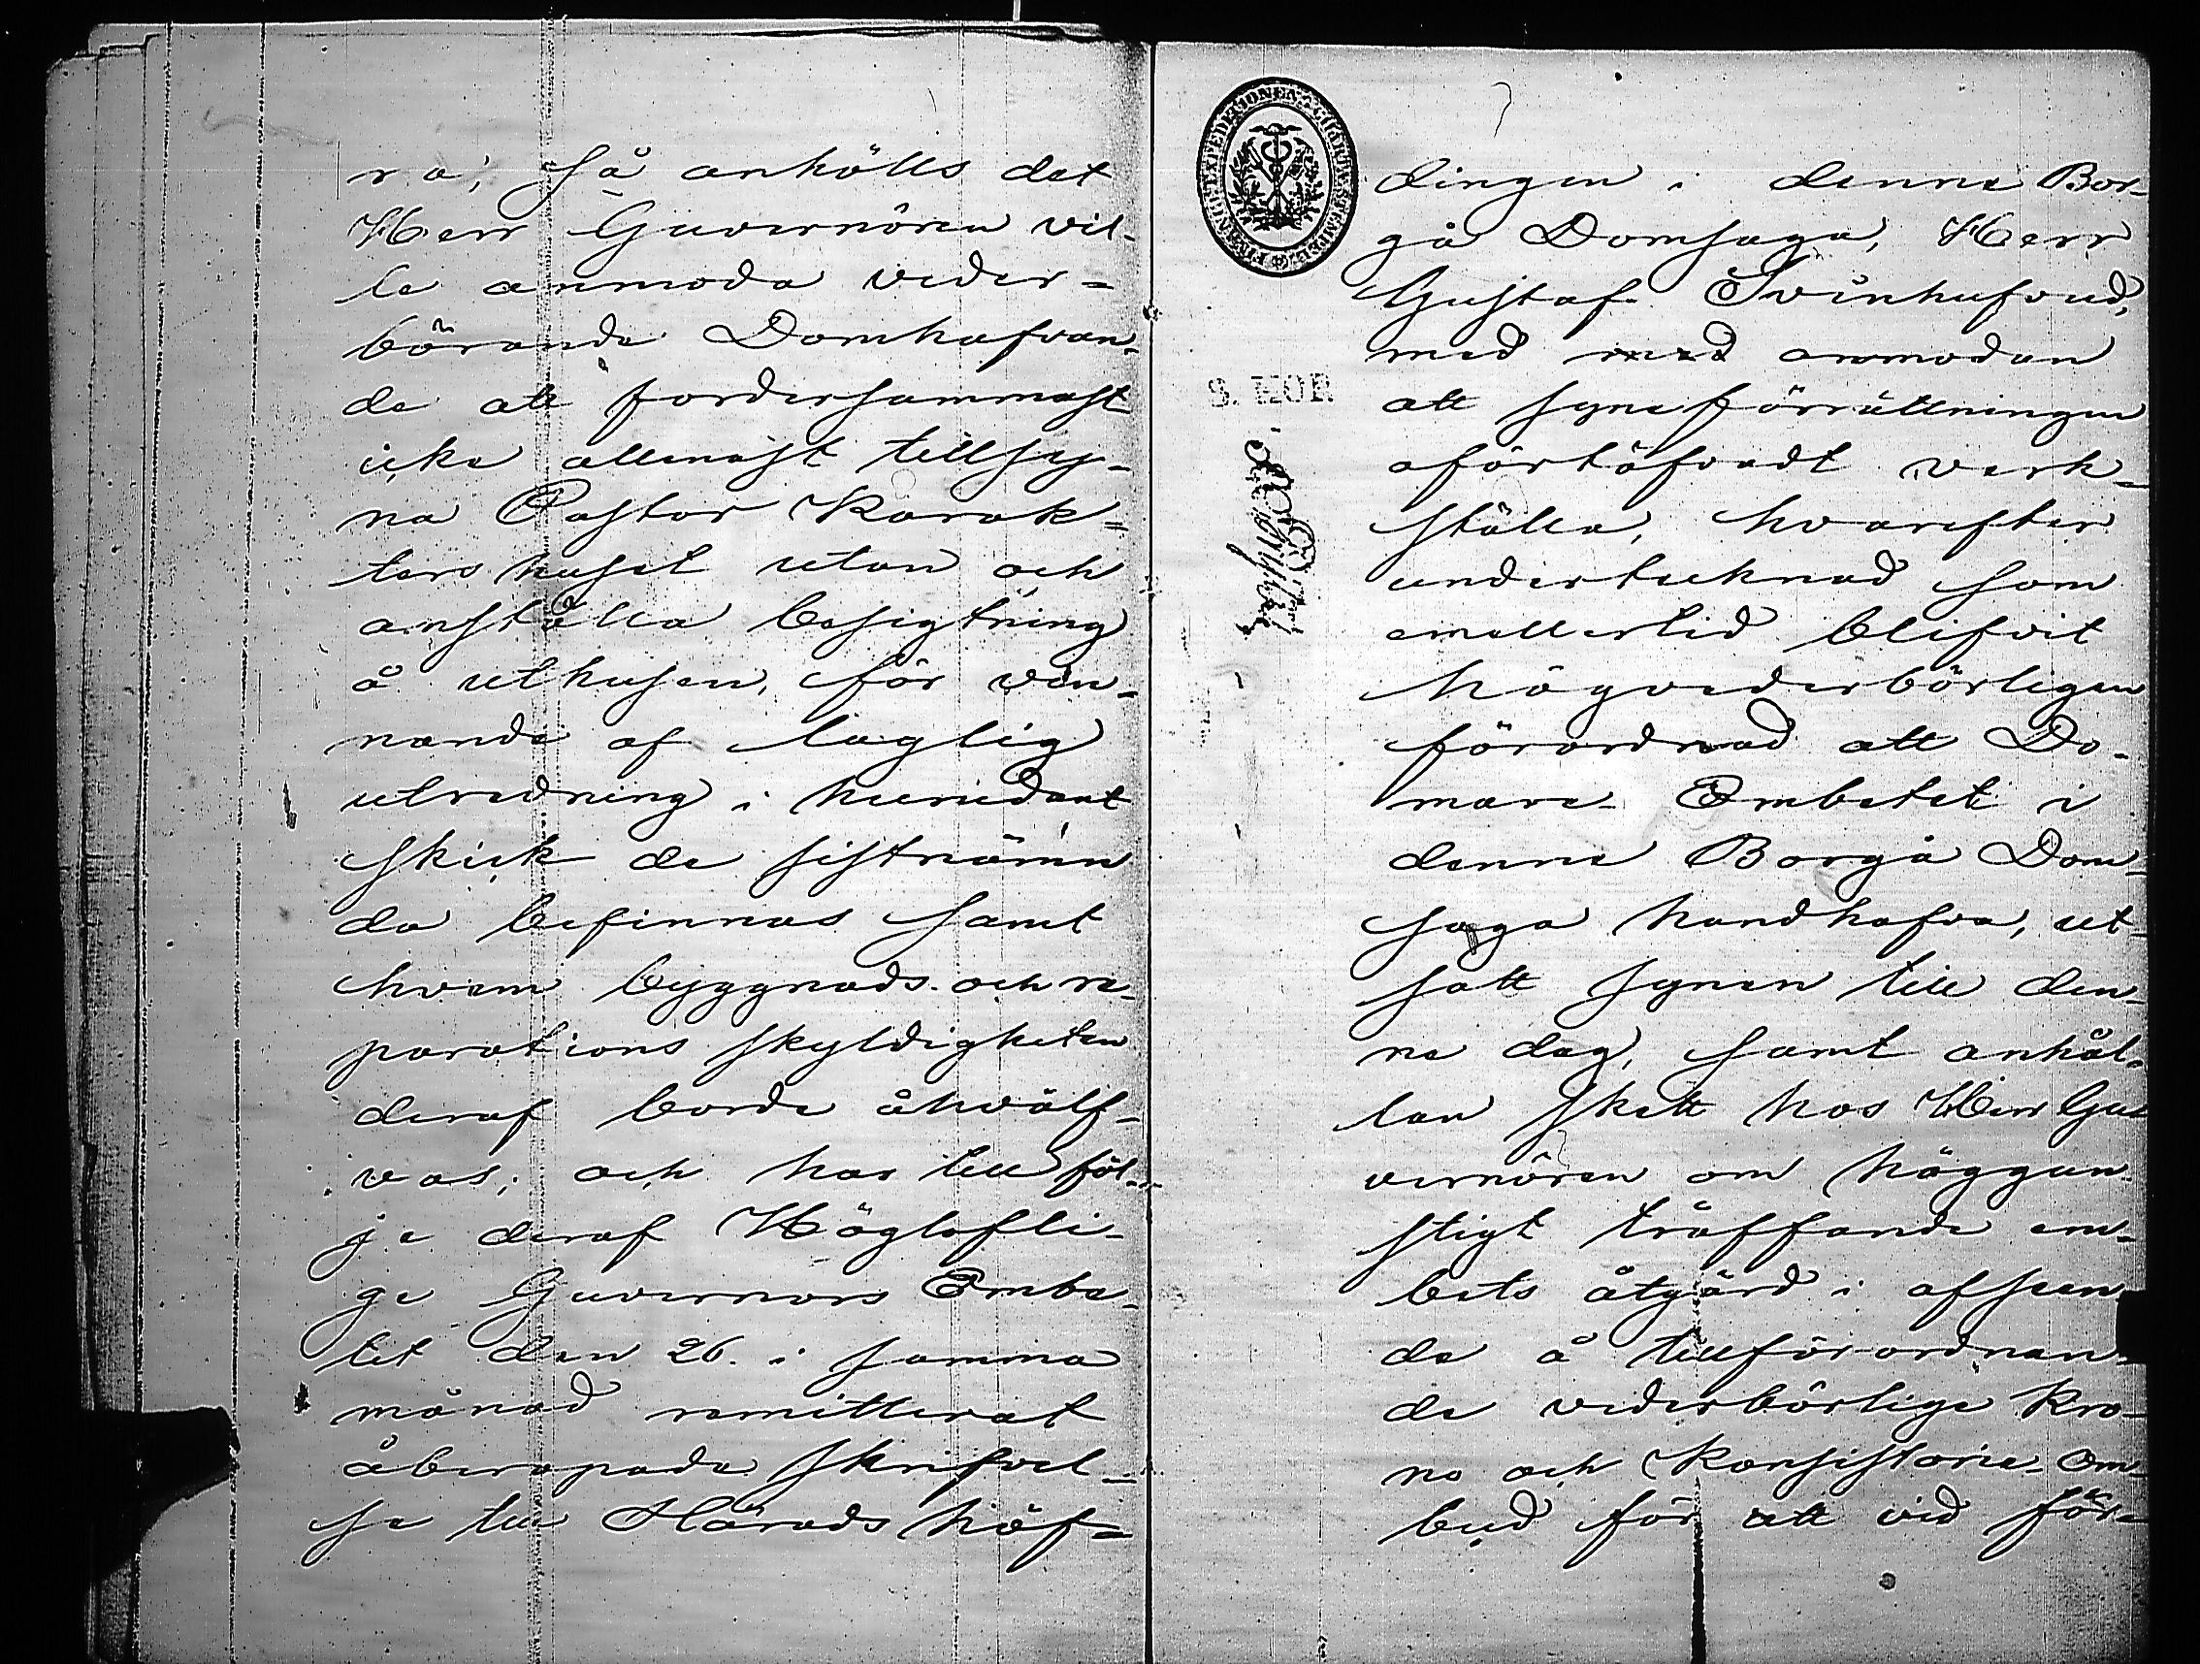 ra, så anhölls det
Herr Guvernören vil-
le anmoda veder-
börande Domhafvan-
de att fordersammast
icke allenast tillsy-
na Pastor Karak-
ters huset utan och
anställa besigtning
å uthusen, för vin-
nande af laglig
utredning i hurudant
skick de sistnämn
da befinnas samt
hvem byggnads- och re-
parations skyldigheten
deraf borde åhvälf-
vas; och har till föl-
je deraf Höglofli-
ge Guvernors Embe-
tet den 26. i samma
månad remitterat
åberopade skrifvel-
se till Härads höf-
dingen i denna Bor-
gå Domsaga, Herr
Gustaf Svinhufvud,
med med anmodan
att syneförrättningen
oförtöfvadt verk-
ställa, hvarefter
undertecknad som
emellertid blifvit
högvederbörligen
förordnad att Do-
mare Embetet i
denna Borgå Dom-
saga handhafva, ut-
satt synen till den-
na dag, samt anhål-
lan skett hos Herr Gu
vernören om höggun-
stigt träffande em-
bets åtgärd i afseen
de å tillförordnan-
de vederbörlige Kro-
no och Konsistorie- Om-
bud för att vid för-
CHARTÆ STEMPEL
FINANCE EXPEDITIONENS
S. KOP